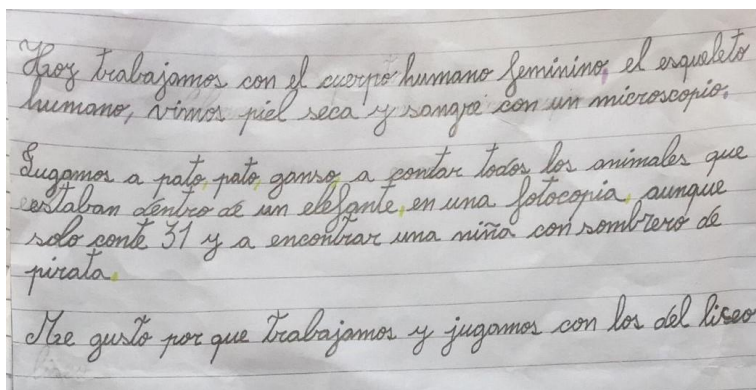 Hoy trabajamos con el cuerpo humano feminino, el esqueleto
humano, vimos piel seca y sangre con un microscopio.
Jugamos a pato, pato, ganso, a contar todos los animales que
estaban dentro de un elefante, en una fotocopia, aunque
solo conte 31 y a encontrar una niña con sombrero de
pirata.
Me gusto por que trabajamos y jugamos con los del liseo